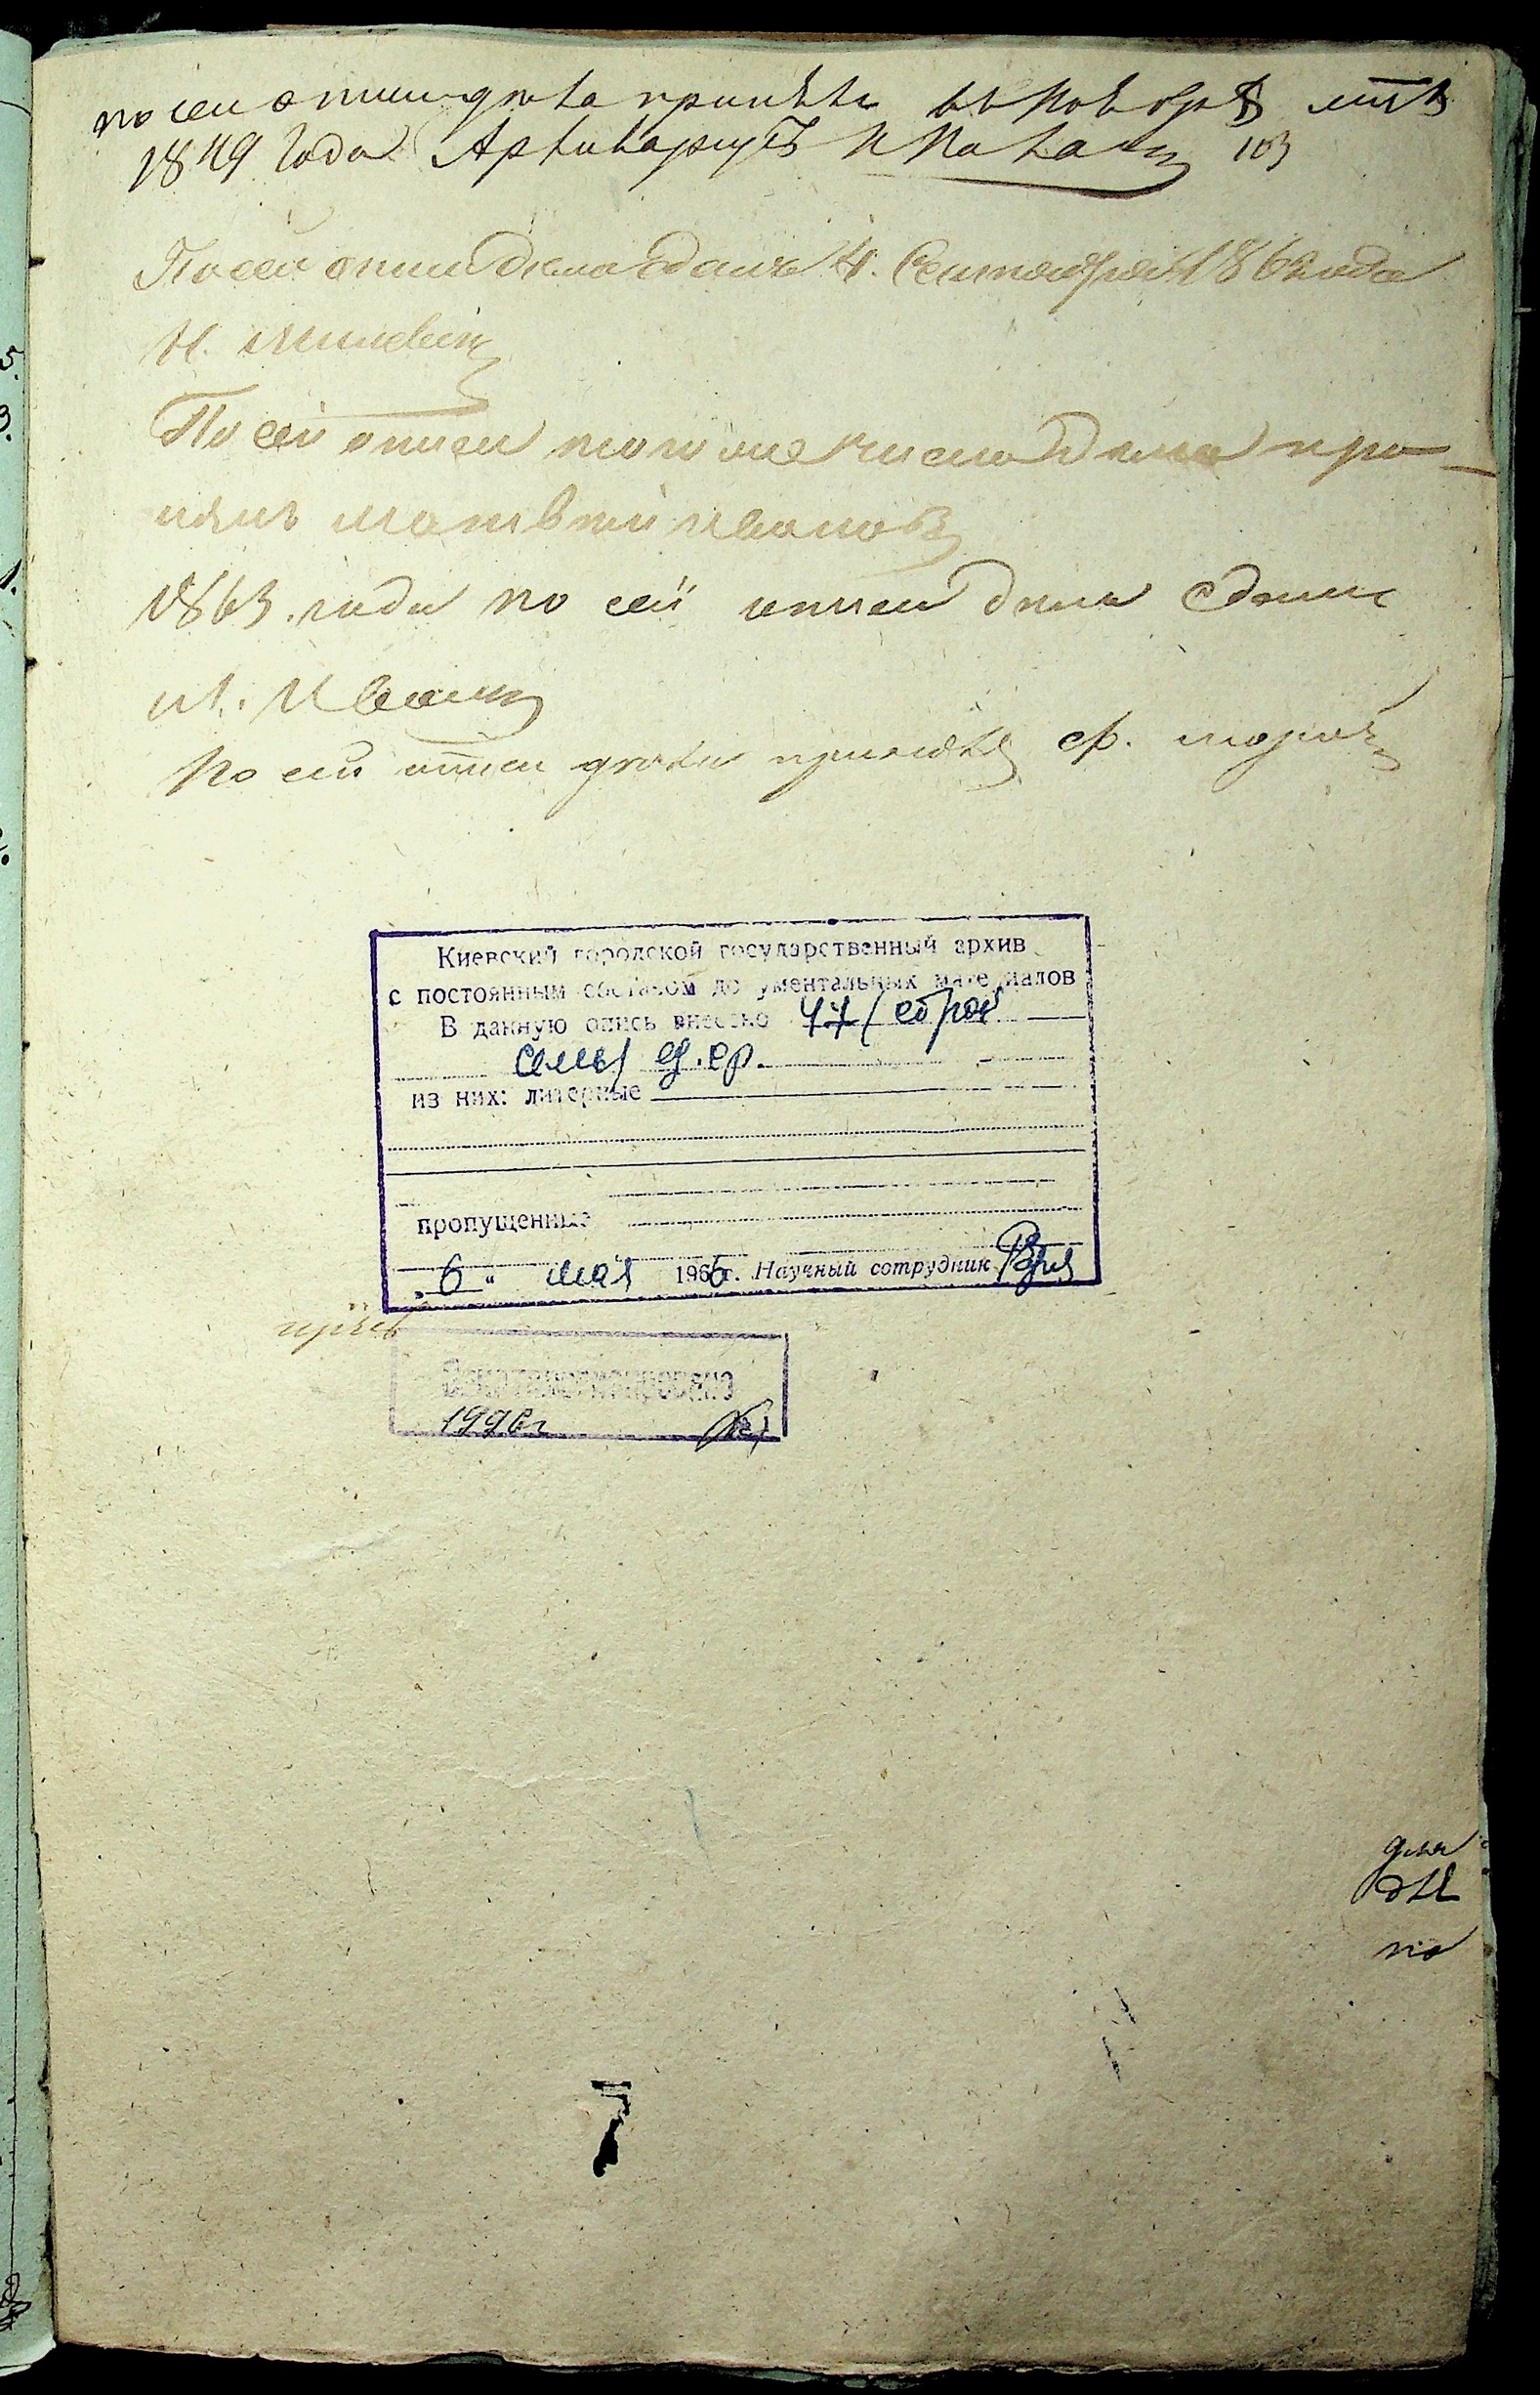 по сей описи дела принялъ въ Ноябрѣ мцѣ
1849 Года Архиваріусъ
По сей описи дела сдалъ 4. Сентября 1862 года
Н.
По сей описи того же числа дела при-
нялъ Матвѣй Иванов
1863. года по сей описи дела сдалъ
М. Иванов
По сей описи дела принялъ
Киевский городской государственный архив
с постоянным составом документальных материалов
В данную опись внесено 47 (сорок
семь) ед. хр.
из них: литерные
пропущенные
„6“ мая 1966г. Научный сотрудник
1996г
для
по
7